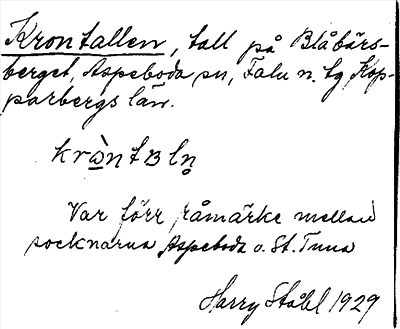 Krontallen, tall på Blåbärs-
berget, Aspeboda sn, Falu n. tg Kop-
parbergs län.
krὼntBln̥
Var förr råmärke mellan
socknarna Aspeboda o. St. Tuna
Harry Ståhl 1929